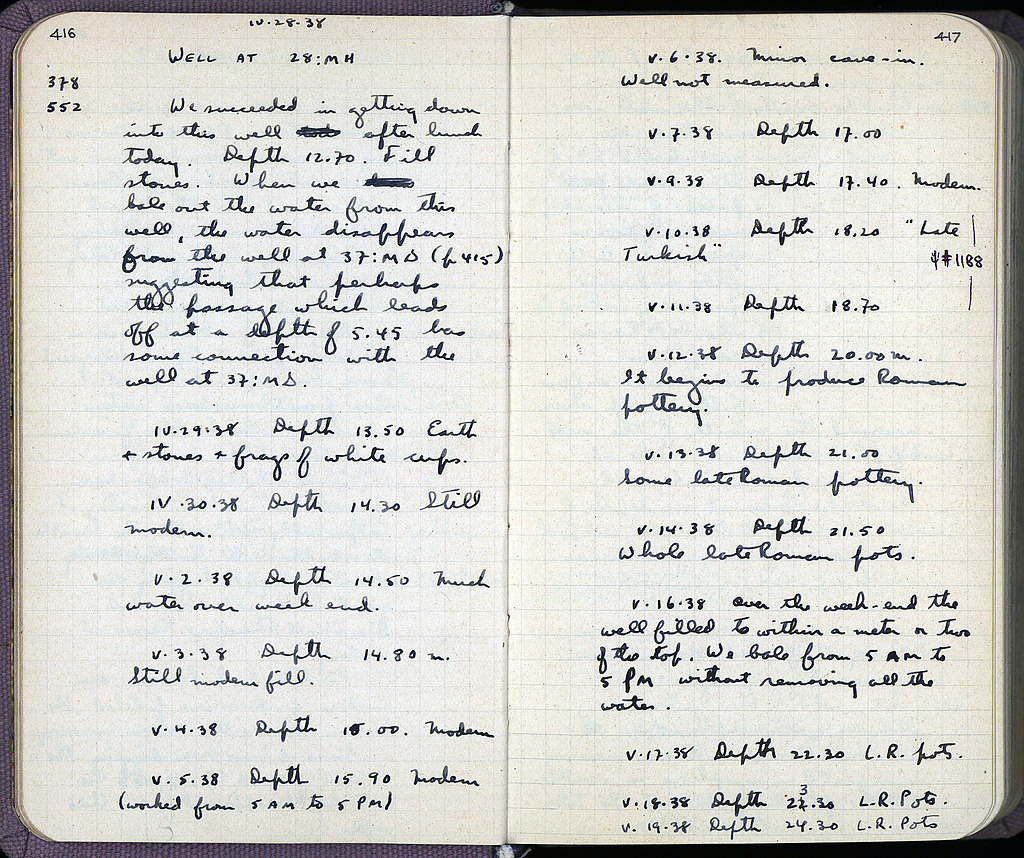 416
IV·28·38
WELL AT 28:MH
378
552
We succeeded in getting down
into this well after lunch
today. Depth 12.70. Fill
stones. When we
bale out the water from this
well, the water disappears
from the well at 37:MΔ (p.415)
suggesting that perhaps
the passage which leads
off at a depth of 5.45 has
some connection with the
well at 37:MΔ.
IV.29:38 Depth 13.50 Earth
+ stones + frags of white cups.
IV.30.38 Depth 14.30 Still
modern.
V.2.38 Depth 14.50 Much
water over week end.
V.3.38 Depth 14.80 m.
Still modern fill.
V.4.38 Depth 15.00. Modern
V.5.38 Depth 15.90 Modern
(worked from 5 AM to 5 PM)
417
V.6.38. Minor cave-in.
Well not measured.
V.7.38 Depth 17.00
V.9.38 Depth 17.40. Modern.
V.10.38 Depth 18.20 "Late
Turkish"
ψ#1188
V.11.38 Depth 18.70
V.12.38 Depth 20.00 m.
It begins to produce Roman
pottery.
V.13.38 Depth 21.00
Some late Roman pottery.
V.14.38 Depth 21.50
Whole late Roman pots.
V.16.38 Over the week-end the
well filled to within a meter or two
of the top. We bale from 5 AM to
5 PM without removing all the
water.
V.17.38 Depth 22.30 L.R. pots.
V.18.38 Depth 23.30 L.R. Pots.
V.19.38 Depth 24.30 L.R. Pots